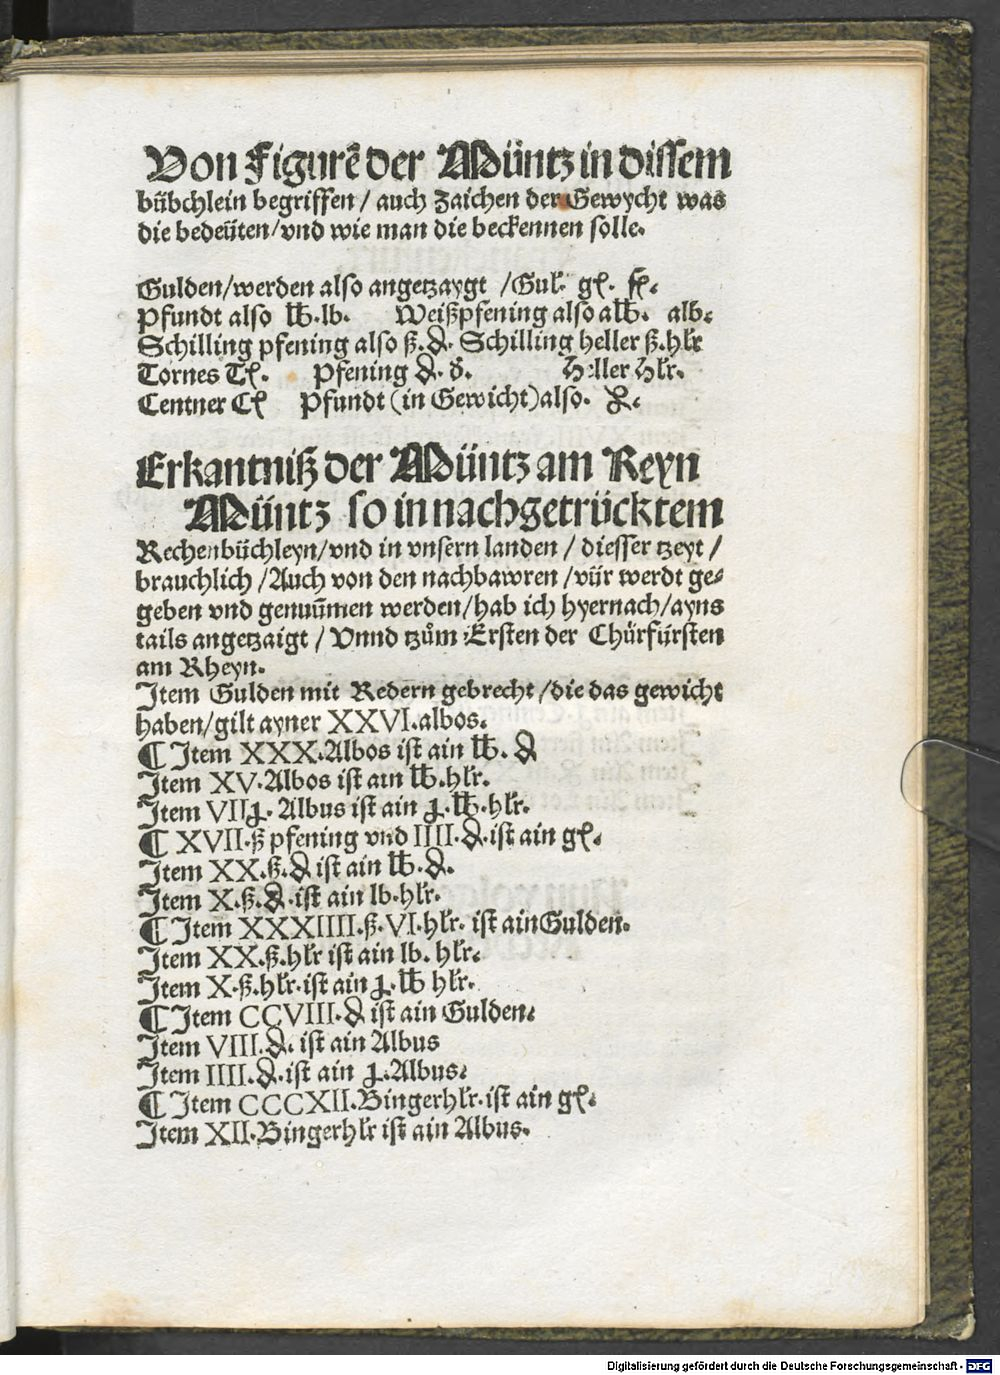 Von Figurẽ der Müntz in dissem
bübchlein begriffen / auch zaichen der Gewycht was
die bedeüten/vnd wie man die beckennen solle.
Gulden/werden also angetzaygt /Gul. gl. fl.
Pfundt also lb.lb. Weißpfening also alb. alb.
Schilling pfening also ß.₰. Schilling heller ß.hlr
Tornes Tl. Pfening ₰. d. Heller hlr.
Centner Cl Pfundt (in Gewicht)also.
Erkantniß der Müntz am Reyn
Müntz so in nachgetrücktem
Rechenbüchleyn/vnd in vnsern landen / diesser tzeyt /
brauchlich /Auch von den nachbawren /vür werdt ge-
geben vnd genuũmen werden/hab ich hyernach/ayns
tails angetzaigt / Vnnd tzům Ersten der Chürfürsten
am Rheyn.
Item Gulden mit Redern gebrecht /die das gewicht
haben/gilt ayner XXVI.albos.
¶ Item XXX.Albos ist ain lb. ₰
Item XV.Albos ist ain lb.hlr.
Item VIIɟ. Albus ist ain ɟ.lb.hlr.
¶ XVII.ß pfening vnd IIII.₰.ist ain gl.
Item XX.ß.₰ ist ain lb.₰.
Item X.ß.₰.ist ain lb.hlr.
¶ Item XXXIIII.ß.VI.hlr. ist ain Gulden.
Item XX.ß.hlr ist ain lb. hlr.
Item X.ß.hlr.ist ain ɟ.lb hlr.
¶ Item CCVIII.₰ ist ain Gulden.
Item VIII.₰. ist ain Albus
Item IIII.₰.ist ain ɟ.Albus.
¶ Item CCCXII.Bingerhlr.ist ain gl.
Item XII.Bingerhlr ist ain Albus.
Digitalisierung gefördert durch die Deutsche Forschungsgemeinschaft - DFG